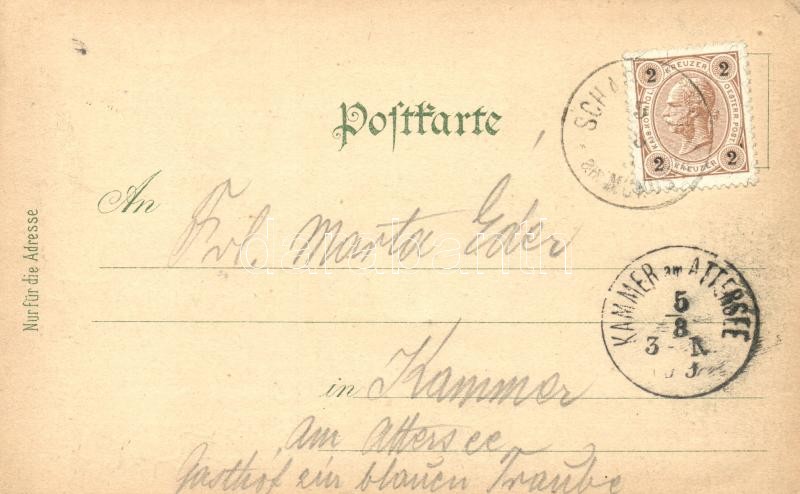 Postkarte
2 KREUZER 2
KAIS. KOENIGL. OESTERR. POST
2 KREUZER 2
SCH
am
An Frl. Marta Eder
darabanth.com
Nur für die Adresse
KAMMER am ATTERSEE
5
8
3 - N
in Kammer
am Attersee
Gasthof zur blauen Traube